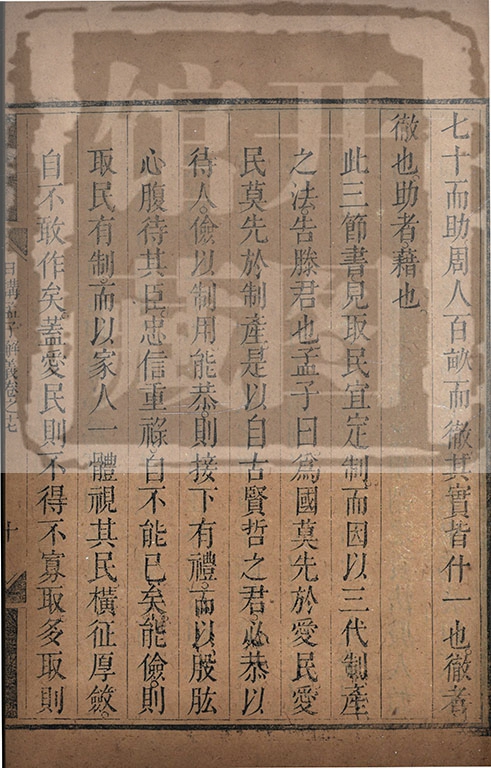 七十而助周人百畝而徹其實皆什一也徹者
徹也助者藉也
此三節書見取民宜定制而因以三代制產
之法告滕君也孟子曰為國莫先於愛民愛
民莫先於制產是以自古賢哲之君必恭以
待人儉以制用能恭則接下有禮而以股肱
心腹待其臣忠信重祿自不能已矣能儉則
取民有制而以家人一體視其民橫征厚斂
自不敢作矣蓋愛民則不得不寡取多取則
日講孟子解義卷之七
十